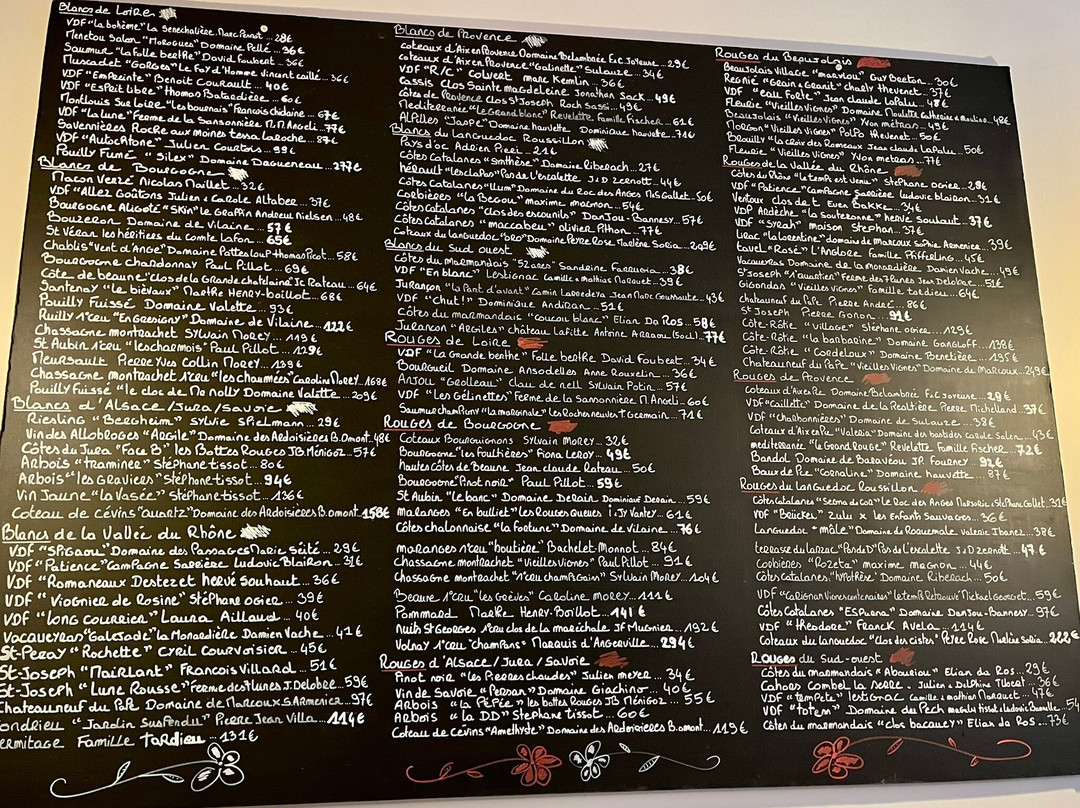 Blancs de Loire
VDF "La bohème" La Senechalière Marc Pesnot ... 28€
Menetou Salon "Morogues" Domaine Pellé ... 36€
Saumur "La Folle berthe" David Foubert ... 36€
Muscadet "Gorges" Le Fay d'Homme Vincent Caillé ... 36€
VDF "Empreinte" Benoit Courault ... 40€
VDF "Esprit Libre" Thomas Batardière ... 60€
Montlouis Sur Loire "Les bournais" Francois Chidaine ... 67€
VDF "La Lune" Ferme de la Sansonnière M.N Angeli ... 77€
Savennières Roche aux moines Tessa Laroche ... 87€
VDF "Autochtone" Julien Courtois ... 99€
Pouilly Fumé "Silex" Domaine Dagueneau ... 277€
Blancs de Bourgogne
Macon Verzé Nicolas Maillet ... 32€
VDF "Allez Goûtons Julien & Carole Altaber ... 37€
Bourgogne Aligoté "SKin" Le Grappin Andrew Nielsen ... 48€
Bouzeron Domaine de Vilaine ... 57€
St Véran les héritiers du comte Lafon ... 65€
Chablis "Vent d'Ange" Domaine Pattes Loup Thomas Picot ... 58€
Bourgogne chardonnay Paul Pillot ... 69€
Côte de beaune "Clos de la Grande chatelaine Jc Rateau ... 64€
Santenay "Le biévaux" Marthe Henry-boillot ... 68€
Pouilly Fuissé Domaine Valette ... 93€
Ruilly 1er cru "En gresigny" Domaine de Vilaine ... 122€
Chassagne montrachet Sylvain Morey ... 119€
St Aubin 1er cru "les charmois" Paul Pillot ... 129€
Meursault Pierre Yves Collin Morey ... 139€
Chassagne montrachet 1er cru "les chaumées" Caroline Morey ... 168€
Pouilly Fuissé "le clos de Mr nolly Domaine Valette ... 209€
Blancs d'Alsace/Jura/Savoie
Riesling "Bergheim" Sylvie Spielmann ... 29€
Vin des Allobroges "Argile" Domaine des Ardoisières B.Omont. 48€
Côtes du Jura "Face B" les Bottes Rouges J.B Ménigoz ... 57€
Arbois "traminer" Stéphane tissot ... 80€
Arbois "les graviers" Stéphane tissot ... 94€
Vin Jaune "La Vasée" Stéphane tissot ... 136€
Coteau de Cévins "Quartz" Domaine des Ardoisières B.omont. 158€
Blancs de la Vallée du Rhône
VDF "Spigaou" Domaine des Passages Marie Séité ... 29€
VDF "Patience" Campagne Sarrière Ludovic Blairon ... 31€
VDF "Romaneaux Destezet hervé Souhaut ... 36€
VDF "Viognier de Rosine" Stéphane ogier ... 39€
VDF "Long courrier" Laura Aillaud ... 40€
Vacqueyras "Galejade" la Monardière Damien Vache ... 41€
St-Peray "Rochette" Cyril Courvoisier ... 45€
St-Joseph "Mairlant" Francois Villard ... 51€
St-Joseph "Lune Rousse" Ferme des 7 lunes J.Delobre ... 59€
Chateauneuf du Pape Domaine de Marcoux S.Armenier ... 97€
ondrieu "Jardin Suspendu" Pierre Jean Villa ... 114€
ermitage Famille Tardieu ... 131€
Blancs de Provence
coteaux d'Aix en Provence Domaine Belambrée F&C Joyeuse ... 29€
coteaux d'Aix en Provence "Galinette" Sulauze ... 34€
VDF "R/C" Calvert marc Kemlin ... 36€
Cassis Clos Sainte magdeleine Jonathan Sack ... 49€
côtes de Provence Clos St Joseph Roch Sassi ... 49€
Mediterranée "Le Grand blanc" Revelette Famille Fischer ... 61€
Alpilles "Jaspe" Domaine hauvette Dominique hauvette ... 71€
Blancs du Languedoc Roussillon
Pays d'oc Adrien Pieri ... 21€
Côtes Catalanes "Sinthèse" Domaine Riberach ... 27€
hérault "Les clapas" Pas de l'escalette J&D Zernott ... 44€
Côtes Catalanes "Llum" Domaine du Roc des Anges M&S Gallet. 50€
Corbières "La Begou" maxime magnon ... 54€
Côtes Catalanes "Clos des escounils" DanJou-Bannesy ... 57€
Côtes Catalanes "maccabeu" olivier Pithon ... 77€
Coteaux du Languedoc "oro" Domaine Peyre Rose Marlène Soria ... 209€
Blancs du Sud ouest
Côtes du Marmandais "52 ares" Sandrine Farrugia ... 38€
VDF "En blanc" Lestignac Camille & Mathias Marquet ... 39€
Jurançon "La Part d'avant" Camin Larredya Jean Marc Grussaute ... 43€
VDF "Chut!" Dominique Andiran ... 51€
Côtes du marmandais "coucou blanc" Elian Da Ros ... 58€
Jurancon "Argiles" château Lafitte Antoine Arraou (Sec) ... 77€
Rouges de Loire
VDF "La Grande berthe" Folle berthe David Foubert ... 34€
Bourgueil Domaine Ansodelles Anne Rouxelin ... 36€
Anjou "Grolleau" Clau de nell Sylvain Potin ... 57€
VDF "Les Gélinettes" Ferme de la Sansonnière M.Angeli ... 60€
Saumur champigny "La marginale" Les Roches neuves t Germain ... 71€
Rouges de Bourgogne
Coteaux Bourguignons Sylvain Morey ... 32€
Bourgogne "les foultières" Fiona Leroy ... 49€
hautes côtes de Beaune Jean claude Rateau ... 50€
Bourgogne "Pinot noir" Paul Pillot ... 59€
St Aubin "Le banc" Domaine Derain Dominique Derain ... 59€
maranges "En bulliet" les Rouges Queues i.Jy Vantey ... 61€
Côtes chalonnaise "la fortune" Domaine de Vilaine ... 76€
maranges 1er cru "boutière" Bachelet-Monnot ... 84€
Chassagne montrachet "Vieilles vignes" Paul Pillot ... 91€
Chassagne montrachet "1er cru champs gain" Sylvain Morey ... 104€
Beaune 1er cru "les Grèves" Caroline Morey ... 111€
Pommard Marthe Henry-Boillot ... 141€
Nuits St Georges 1er cru clos de la maréchale JF Mugnier ... 192€
Volnay 1er cru "champans" Marquis d'Angerville ... 294€
Rouges d'Alsace/Jura/Savoie
Pinot noir "les Pierres chaudes" Julien meyer ... 34€
Vin de Savoie "Persan" Domaine Giachino ... 40€
Arbois "La Pépée" les bottes Rouges JB Ménigoz ... 55€
Arbois "La DD" Stéphane tissot ... 60€
Coteau de Cévins "Amethyste" Domaine des Ardoisières B.omont ... 119€
Rouges du Beaujolais
Beaujolais Village "marylou" Guy Breton ... 30€
Regnié "Grain & Granit" Charly Thevenet ... 37€
VDF "eau Forte" Jean claude Lapalu ... 48€
Fleurie "Vieilles Vignes" Domaine Moulette Catherine & Maxime. 48€
Beaujolais "Vieilles Vignes" Yvon métras ... 49€
Morgon "Vieilles Vignes" Polpo Thevenet ... 50€
Brouilly "La croix des Rameaux Jean Claude Lapalu ... 50€
Fleurie "Vieilles Vignes" Yvon metras ... 77€
Rouges de la Vallée du Rhône
Côtes du Rhône "Le temps est venu" Stéphane ogier ... 28€
VDF "Patience" Campagne Sarrière Ludovic Blairon ... 31€
Ventoux Clos de t Even Bakke ... 34€
VDP Ardèche "La Souteronne" hervé Souhaut ... 37€
VDF "Syrah" maison Stephan ... 37€
Lirac "La lorentine" domaine de Marcoux Sophie Armenier ... 39€
tavel "Rosé" L'Anglore Famille Pfifferling ... 45€
Vacqueyras Domaine de la monardière Damien Vache ... 49€
St Joseph "L'austier" Ferme des 7 lunes Jean Delobre ... 51€
Gigondas "Vieilles Vignes" Famille tardieu ... 64€
chateauneuf du Pape Pierre André ... 86€
St Joseph Pierre Gonon ... 91€
Côte-Rôtie "Village" Stéphane ogier ... 129€
Côte-Rôtie "la barbarine" Domaine Gangloff ... 138€
Côte-Rôtie "Cordeloux" Domaine Benetière ... 195€
Chateauneuf du Pape "Vieilles Vignes" Domaine de Marcoux ... 249€
Rouges de Provence
coteaux d'Aix en Pce Domaine Belambrée F&C Joyeuse ... 29€
VDF "caillette" Domaine de la Realtière Pierre Michelland. 37€
VDF "Charbonnières" Domaine de Sulauze ... 38€
Coteaux d'Aix en Pce "Valeria" Domaine des bastides Carole Salen ... 43€
mediterranée "Le Grand Rouge" Revelette Famille Fischer ... 72€
Bandol Domaine de Baravéou J.P. Fourney ... 92€
Baux de Pce "Cornaline" Domaine hauvette ... 87€
Rouges du Languedoc Roussillon
Côtes Catalanes "Segna de Cor" Le Roc des Anges Marjorie & Stéphane Gallet. 31€
VDF "Beückel" Zulu & les Enfants Sauvages ... 36€
Languedoc "mâle" Domaine de Roquemale Valerie Ibanez ... 38€
terrasse du larzac "Pas de D" Pas de l'escalette J&D Zernott ... 47€
Corbières "Rozeta" maxime magnon ... 44€
Côtes Catalanes "hypothèse" Domaine Riberach ... 50€
VDF "Carignan Vignes centenaires" Le temps Retrouvé Mickael Georget ... 59€
Côtes Catalanes "Espurna" Domaine Danjou-Bannesy ... 97€
VDF "theodore" Franck Avela ... 114€
Coteaux du languedoc "Clos des cistes" Peyre Rose Marlène Soria ... 222€
Rouges du Sud-ouest
Côtes du marmandais "Abouriou" Elian da Ros ... 29€
Cahors Combel La Serre Julien & Delphine Tilbert ... 36€
VDF "Le temps" Lestignac Camille & Mathias Marquet ... 47€
VDF "totem" Domaine du Pech Magaly tissot & Ludovic Bonnelle ... 54
Côtes du marmandais "clos bacquey" Elian da Ros ... 73€